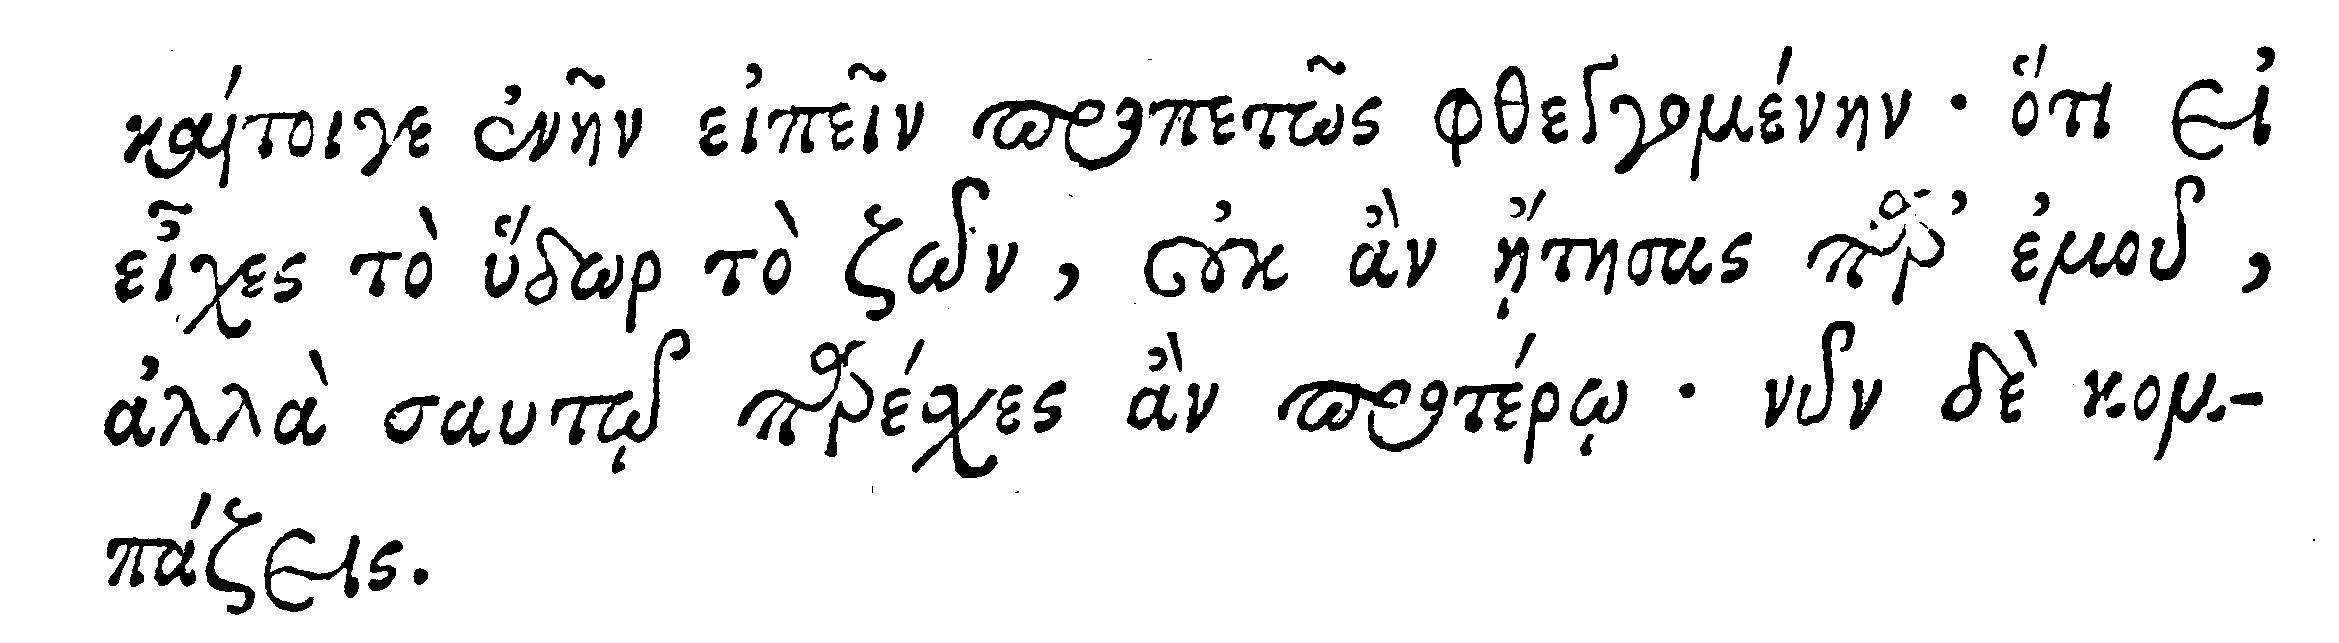 καίτοιγε ἐνῆν εἰπεῖν προπετῶς φθεγγομένην · ὅτι εἰ
εἶχες τὸ ὕδωρ τὸ ζῶν, οὐκ ἂν ᾔτησας παρ' ἐμοῦ,
ἀλλὰ σαυτῷ παρέχες ἂν προτέρῳ · νῦν δὲ κομ-
πάζεις.